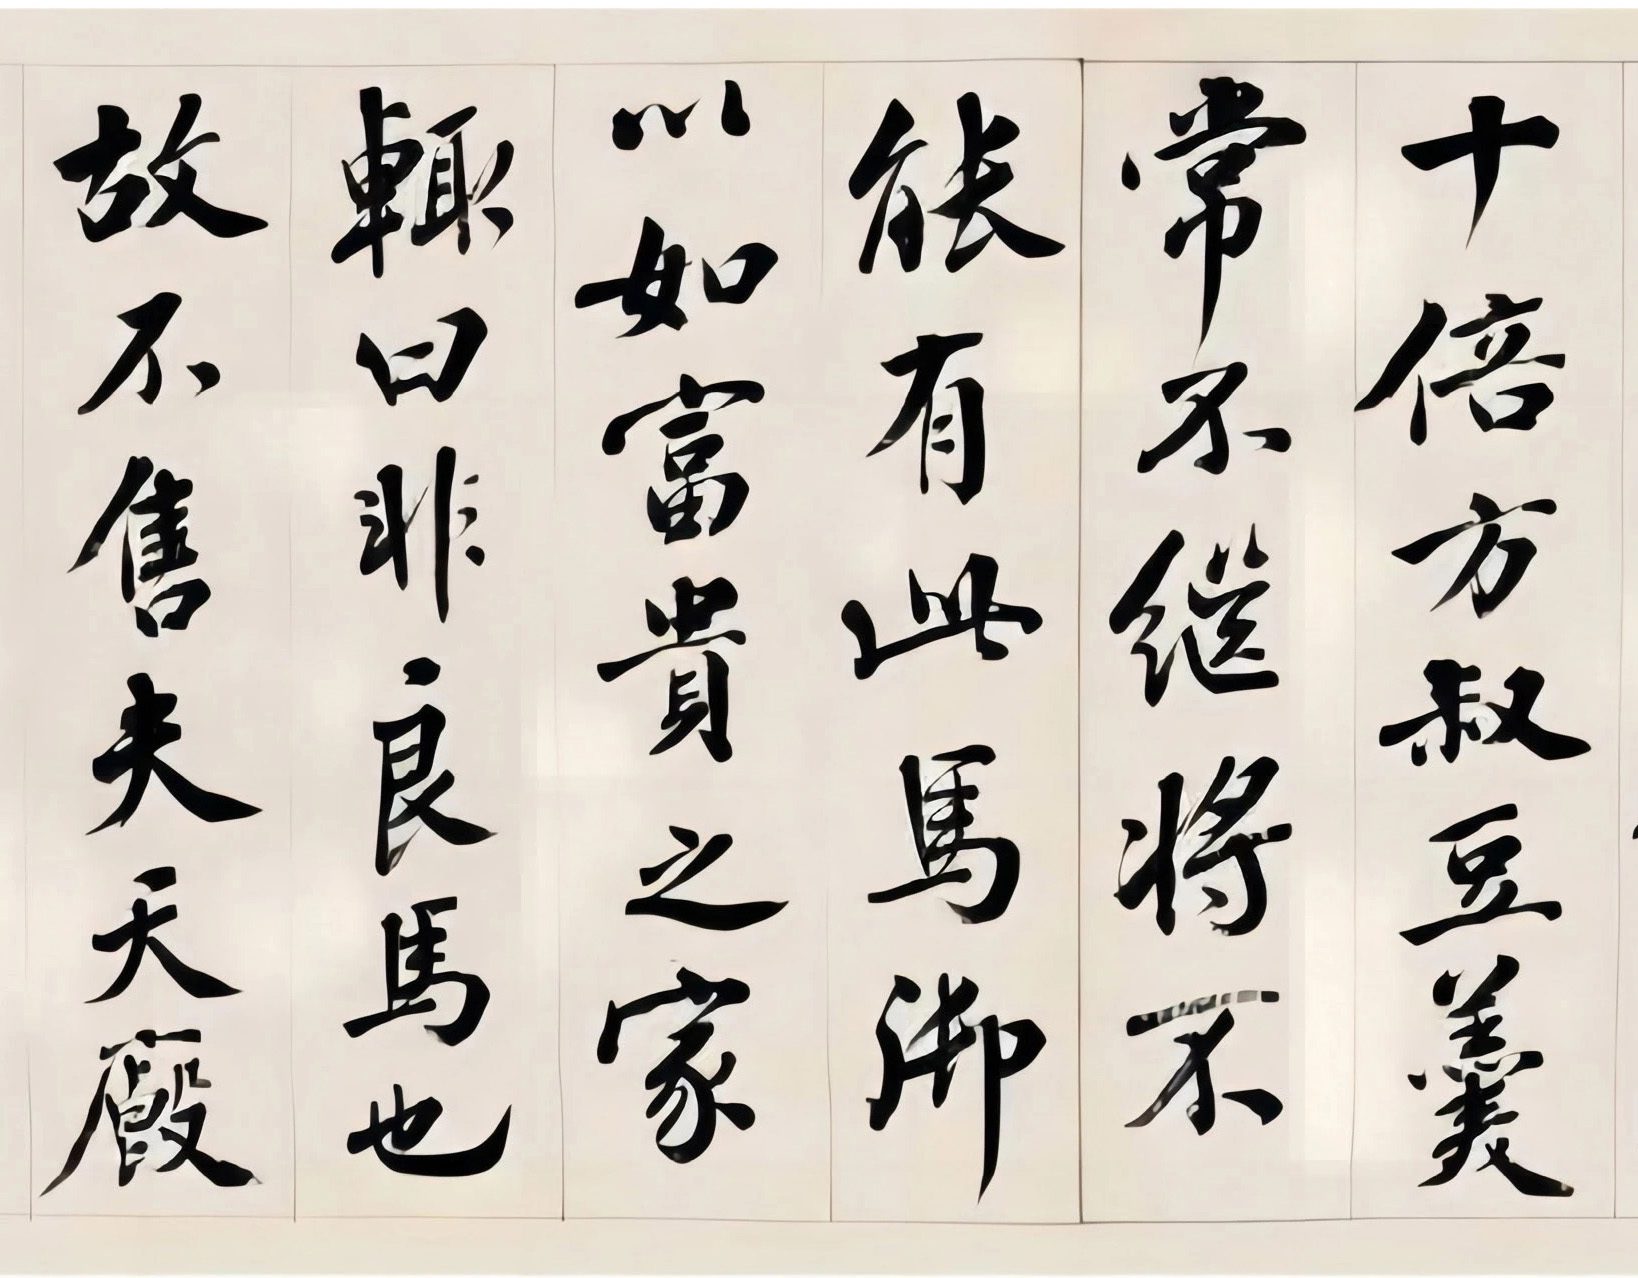 十倍方叔豆羹
常不继将不
能有此馬御
以如富貴之家
輒曰非良馬也
故不售夫天廄